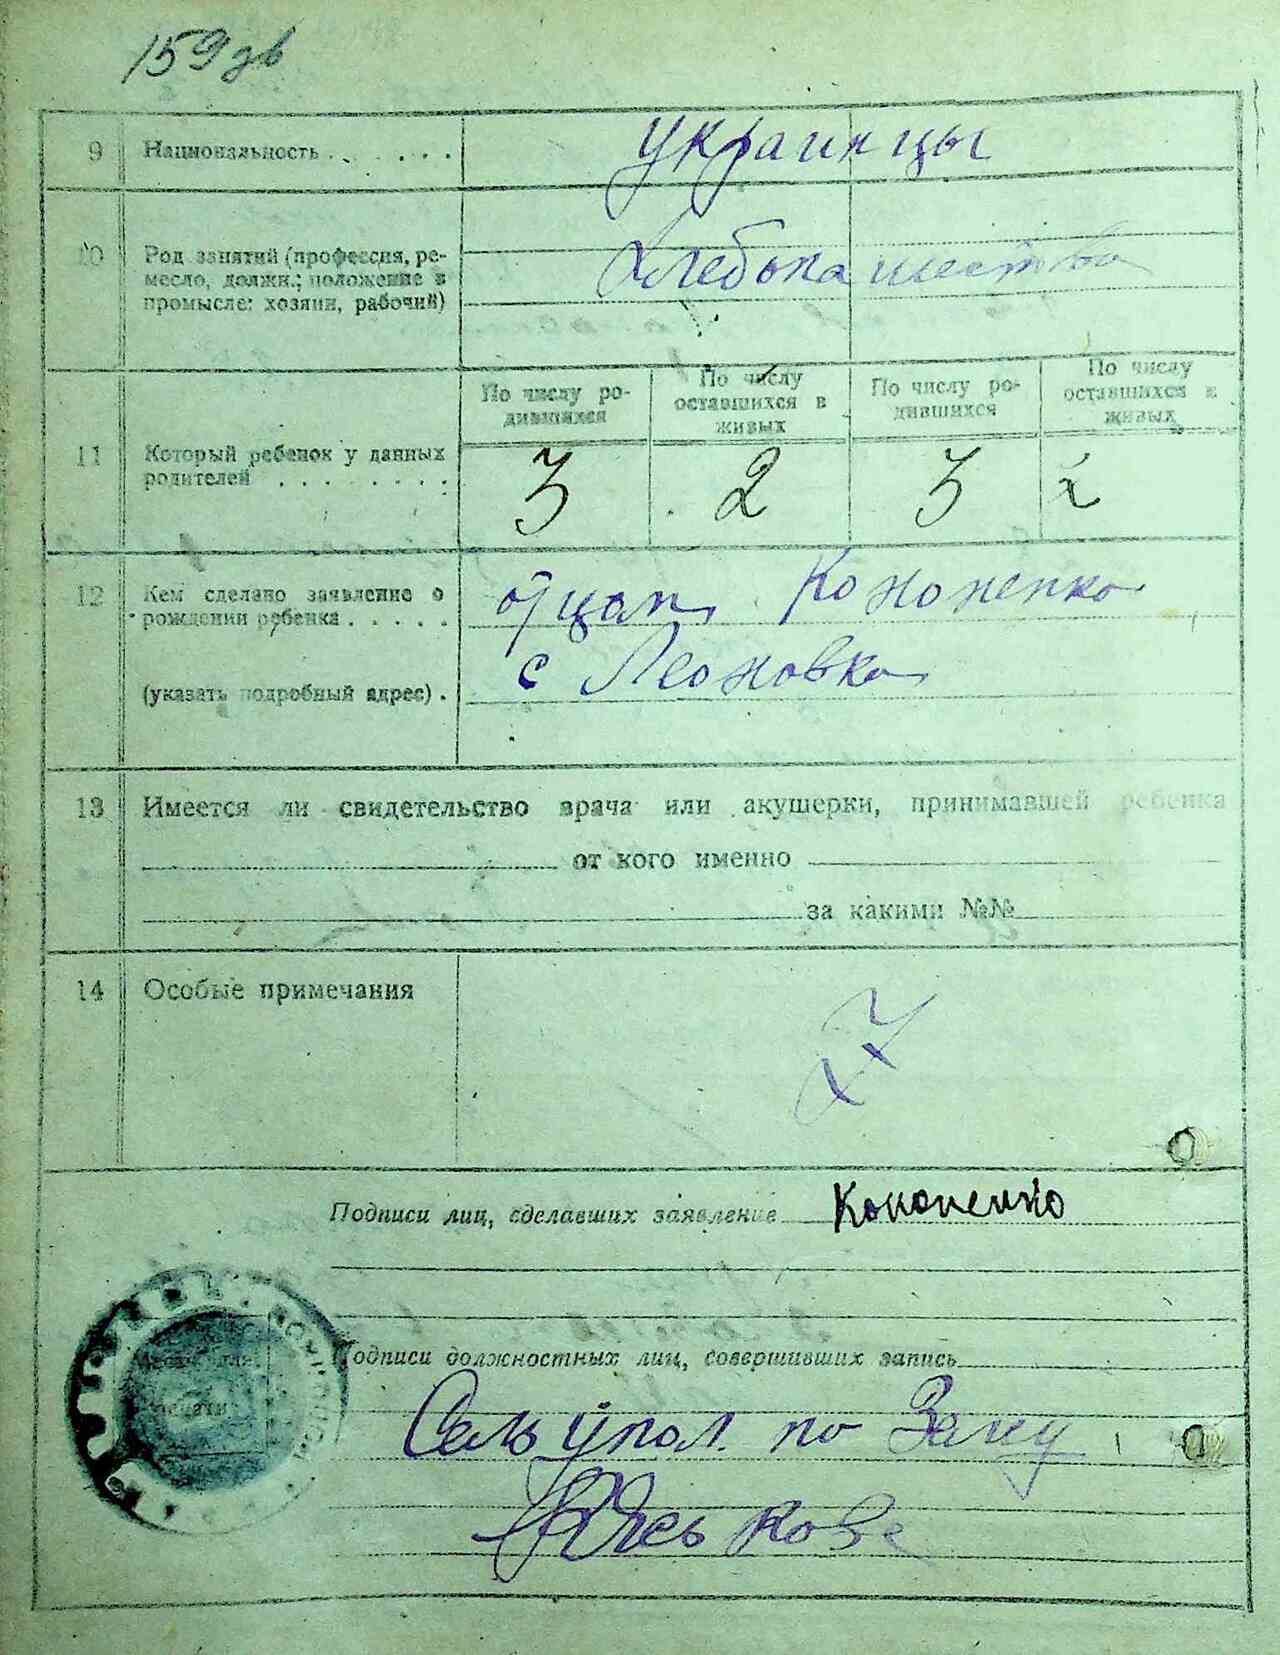 159 зв
9 Национальность . . . . . . украинцы
10 Род занятий (профессия, ре-
месло, должн.; положение в
промысле: хозяин, рабочий)
хлебопашество
По числу ро-
дившихся
По числу
оставшихся в
живых
По числу ро-
дившихся
По числу
оставшихся в
живых
11 Который ребенок у данных
родителей . . . . . . . .
3 2 3 2
12 Кем сделано заявление о
рождении ребенка . . . . .
отцом Кононенко
(указать подробный адрес) .
с Леоновка
13 Имеется ли свидетельство врача или акушерки, принимавшей ребенка
от кого именно
за какими №№
14 Особые примечания
Подписи лиц, сделавших заявление Кононенко
Место для
печати
Подписи должностных лиц, совершивших запись
Сель упол. по Загсу